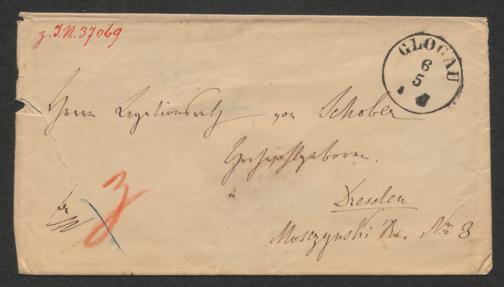 z. I.N. 37069
GLOGAU
6
5
Herrn Legationsrath von Schober
Hochwohlgeboren.
Dresden
Mosczynski Str. No. 8